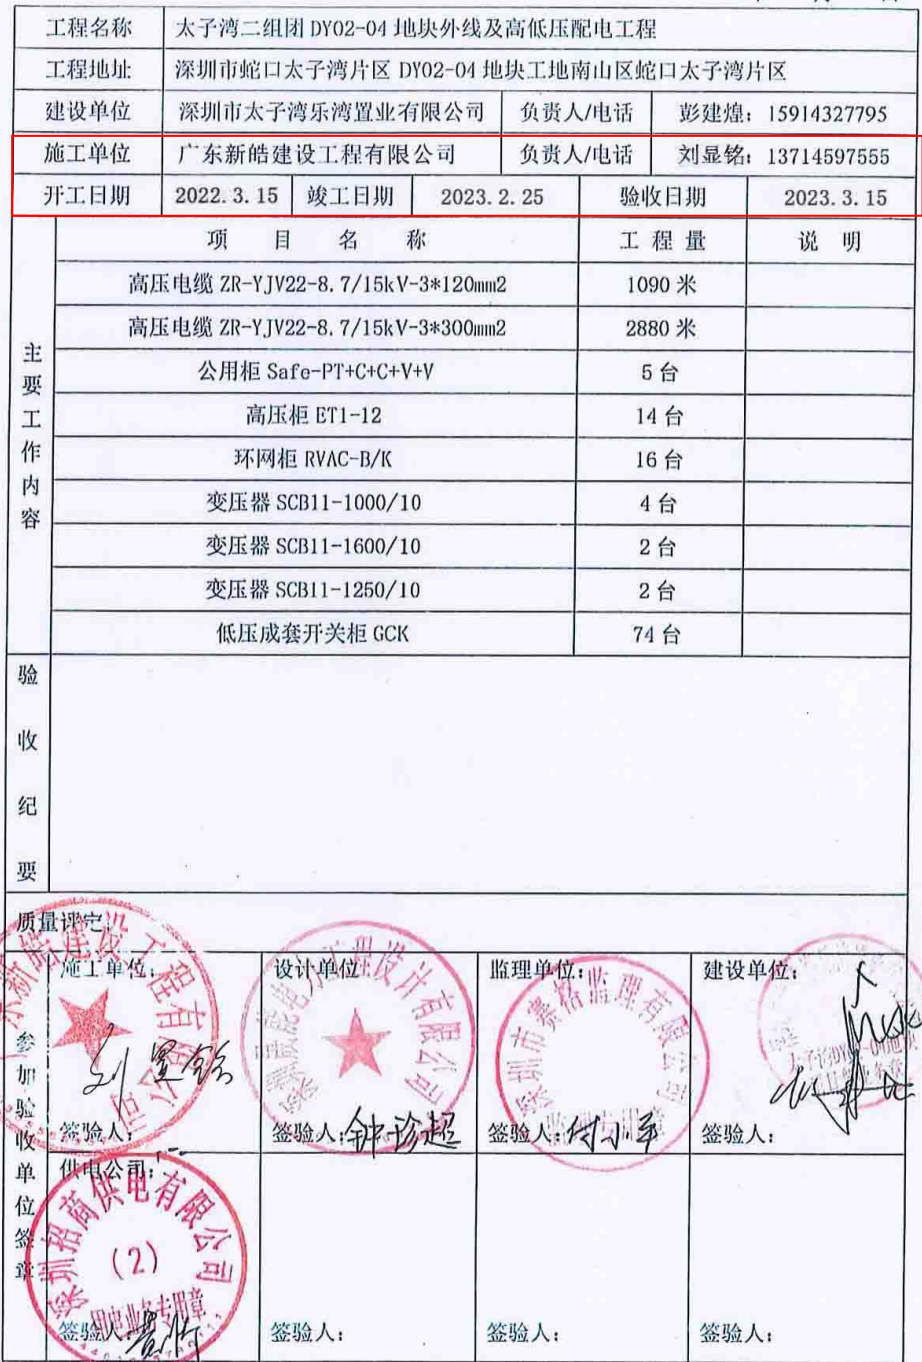 工程名称 太子湾二组团 DY02-04 地块外线及高低压配电工程
工程地址 深圳市蛇口太子湾片区 DY02-04 地块工地南山区蛇口太子湾片区
建设单位 深圳市太子湾乐湾置业有限公司 负责人/电话 彭建煌：15914327795
施工单位 广东新皓建设工程有限公司 负责人/电话 刘显铭：13714597555
开工日期 2022.3.15 竣工日期 2023.2.25 验收日期 2023.3.15
主要工作内容
项目名称 工程量 说明
高压电缆 ZR-YJV22-8.7/15kV-3*120mm2 1090 米
高压电缆 ZR-YJV22-8.7/15kV-3*300mm2 2880 米
公用柜 Safe-PT+C+C+V+V 5 台
高压柜 ET1-12 14 台
环网柜 RVAC-B/K 16 台
变压器 SCB11-1000/10 4 台
变压器 SCB11-1600/10 2 台
变压器 SCB11-1250/10 2 台
低压成套开关柜 GCK 74 台
验收纪要
质量评定：
参加验收单位签章
施工单位： 设计单位 监理单位： 建设单位：
新皓建设工程有限公司
工程设计有限公司
深圳市赛格监理有限公司
刘显铭
签验人： 签验人：钟珍超 签验人：付小军 签验人：
供电公司：
深圳招商供电有限公司
(2)
用电业务专用章
签验人 签验人： 签验人： 签验人：